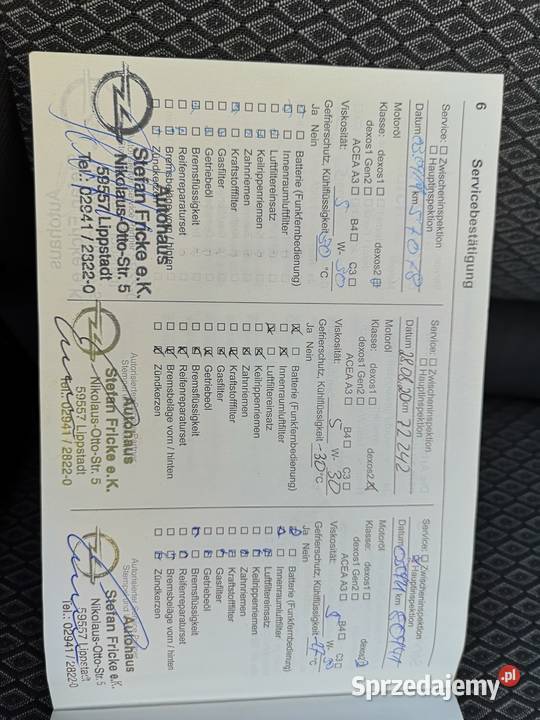 6
Servicebestätigung
Service: ☐ Zwischeninspektion
☐ Hauptinspektion
Datum km 57078
Motoröl
Klasse: dexos1 ☐ dexos2
dexos1 Gen2 ☐
ACEA A3 ☐ B4 ☐ C3 ☐
Viskosität: 5 W- 30
Gefrierschutz, Kühlflüssigkeit °C
Ja Nein
Batterie (Funkfernbedienung)
Innenraumluftfilter
Luftfiltereinsatz
Keilrippenriemen
Zahnriemen
Kraftstofffilter
Gasfilter
Getriebeöl
Bremsflüssigkeit
Reifenreparaturset
Bremsbeläge vorn / hinten
Zündkerzen
Autohaus
Stefan Fricke e.K.
Nikolaus-Otto-Str. 5
59557 Lippstadt
Tel.: 02941 / 2322-0
Service: ☐ Zwischeninspektion
☐ Hauptinspektion
Datum km 72242
Motoröl
Klasse: dexos1 ☐ dexos2
dexos1 Gen2 ☐
ACEA A3 ☐ B4 ☐ C3 ☐
Viskosität: 5 W- 30
Gefrierschutz, Kühlflüssigkeit -30 °C
Ja Nein
Batterie (Funkfernbedienung)
Innenraumluftfilter
Luftfiltereinsatz
Keilrippenriemen
Zahnriemen
Kraftstofffilter
Gasfilter
Getriebeöl
Bremsflüssigkeit
Reifenreparaturset
Bremsbeläge vorn / hinten
Zündkerzen
Autohaus
Stefan Fricke e.K.
Nikolaus-Otto-Str. 5
59557 Lippstadt
Tel.: 02941 / 2822-0
Service: ☐ Zwischeninspektion
Hauptinspektion
Datum km
Motoröl
Klasse: dexos1 ☐ dexos2
dexos1 Gen2 ☐
ACEA A3 ☐ B4 ☐ C3 ☐
Viskosität: 5 W- 30
Gefrierschutz, Kühlflüssigkeit °C
Ja Nein
Batterie (Funkfernbedienung)
Innenraumluftfilter
Luftfiltereinsatz
Keilrippenriemen
Zahnriemen
Kraftstofffilter
Gasfilter
Getriebeöl
Bremsflüssigkeit
Reifenreparaturset
Bremsbeläge vorn / hinten
Zündkerzen
Autohaus
Stefan Fricke e.K.
Nikolaus-Otto-Str. 5
59557 Lippstadt
Tel.: 02941 / 2822-0
Sprzedajemy.pl